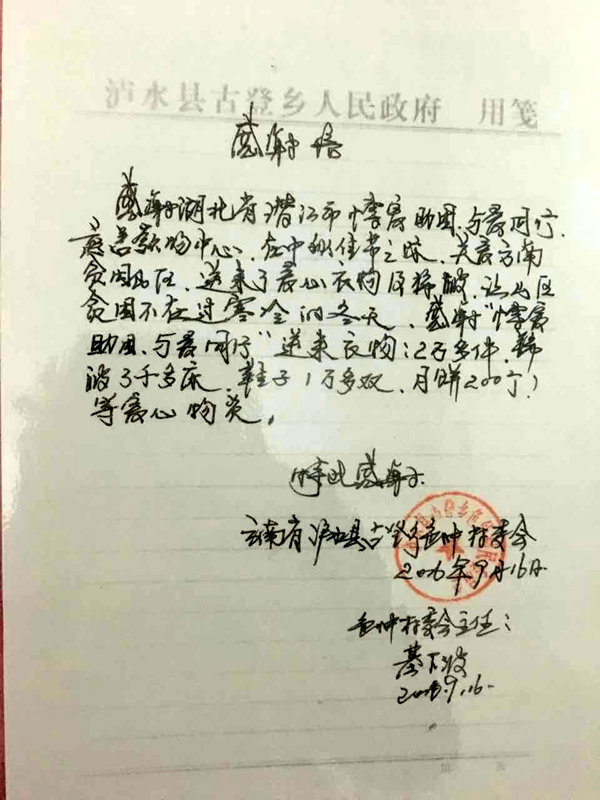 泸水县古登乡人民政府 用笺
感谢信
感谢湖北省潜江市情露助困、与爱同行
慈善款物中心、在中秋佳节之际、关爱云南
贫困山区、送来了爱心衣物及棉被、让山区
贫困不在过寒冷的冬天、感谢"情露
助困、与爱同行"送来衣物:2万多件、棉
被3千多床、鞋子1万多双、月饼200个
等爱心物资。
特此感谢
云南省泸水县古登乡 村委会
2016年9月16日
村委会主任:
2016.9.16.